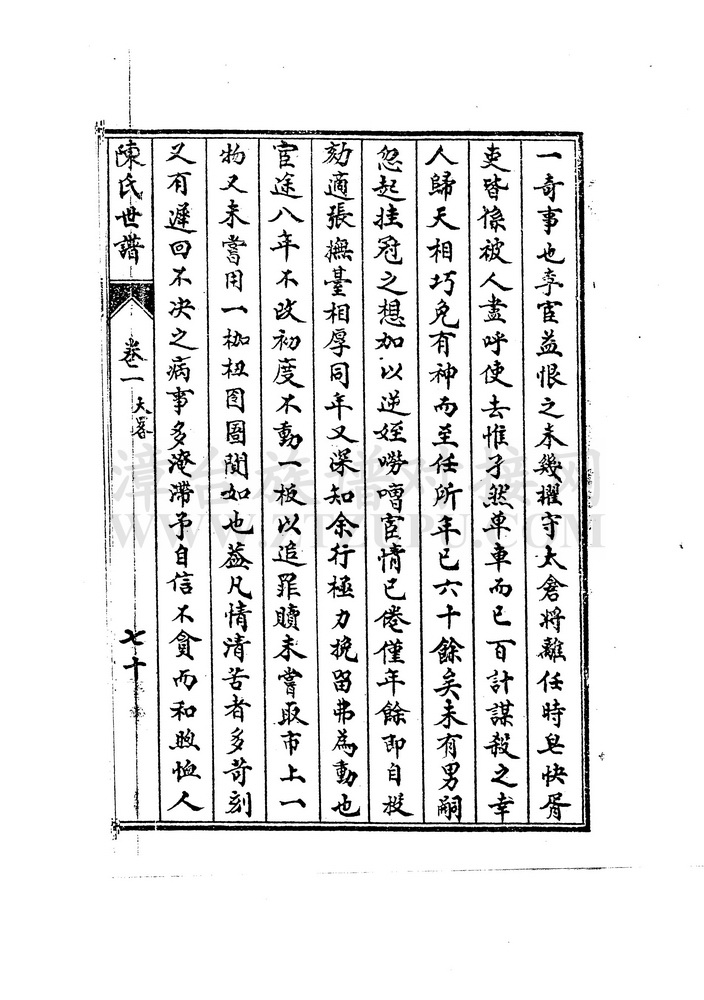 一奇事也李宦益恨之未幾擢守太倉將離任時皂快胥
吏皆係被人盡呼使去惟孑然單車而已百計謀殺之幸
人歸天相巧免有神而至任所年已六十餘矣未有男嗣
忽起挂冠之想加以逆姪嘮嘈宦情已倦僅年餘即自投
劾適張撫臺相厚同年又深知余行極力挽留弗為動也
宦途八年不改初度不動一板以追罪贖未嘗取市上一
物又未嘗用一枷杻囹圄閴如也蓋凡情清苦者多苛刻
又有遲回不决之病事多淹滯予自信不貪而和煦恤人
陳氏世譜
卷一
大畧
七十
漳台族譜對接网
WWW.ZTZUPU.COM